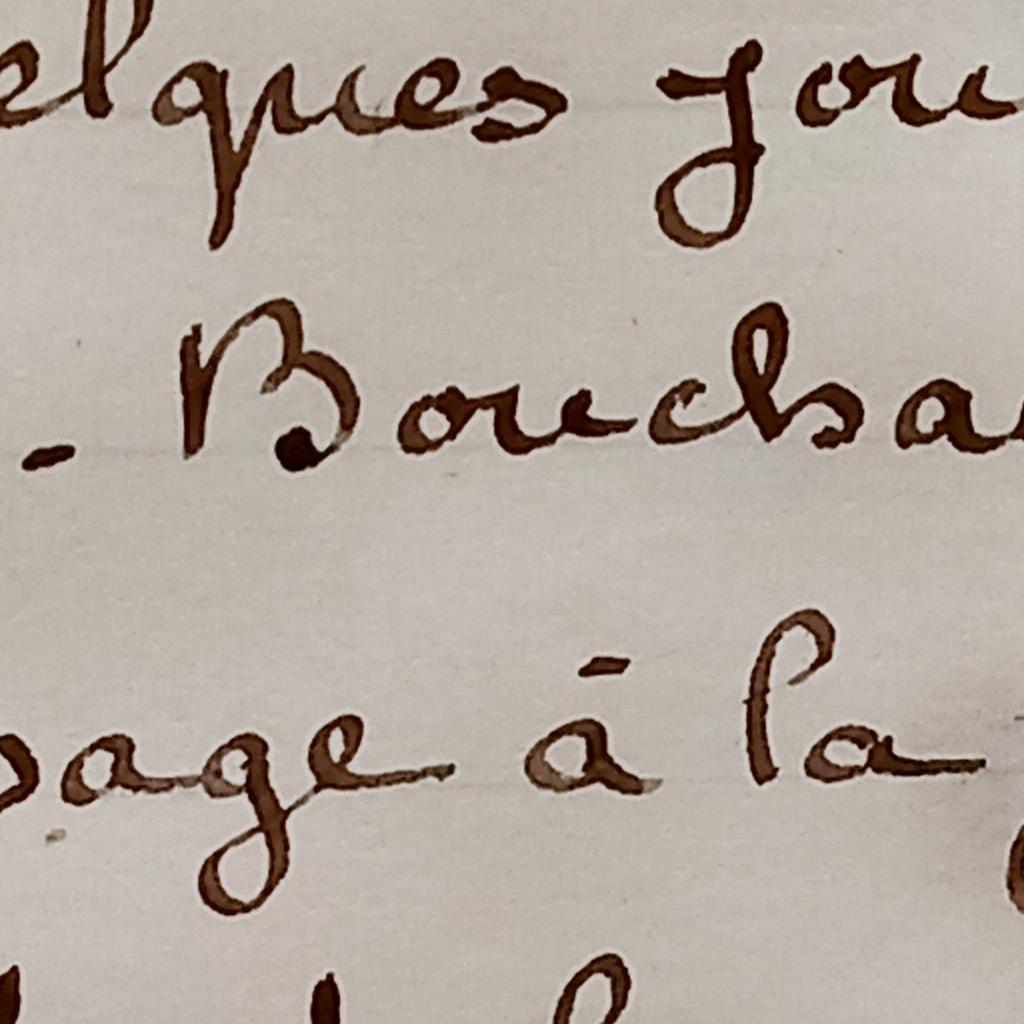 elques jou
-Boucha
sage à la